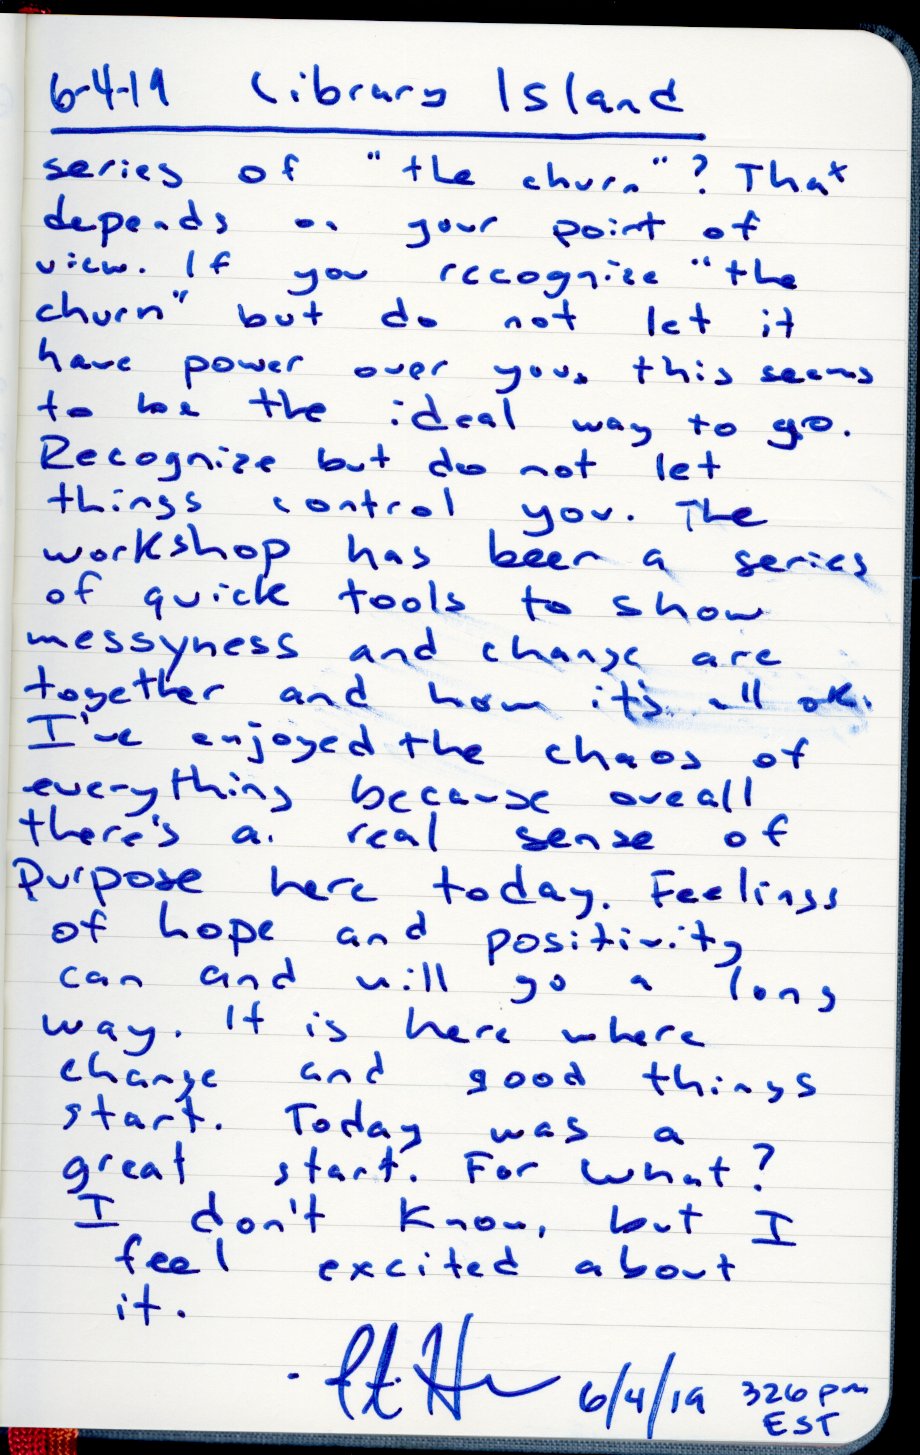 6-4-19 Library Island
series of "the churn"? That
depends on your point of
view. If you recognize "the
churn" but do not let it
have power over you, this seems
to be the ideal way to go.
Recognize but do not let
things control you. The
workshop has been a series
of quick tools to show
messyness and change are
together and how it's all ok.
I've enjoyed the chaos of
everything because overall
there's a real sense of
Purpose here today. Feelings
of hope and positivity
can and will go a long
way. It is here where
change and good things
start. Today was a
great start. For what?
I don't know, but I
feel excited about
it.
6/4/19 326 pm
EST